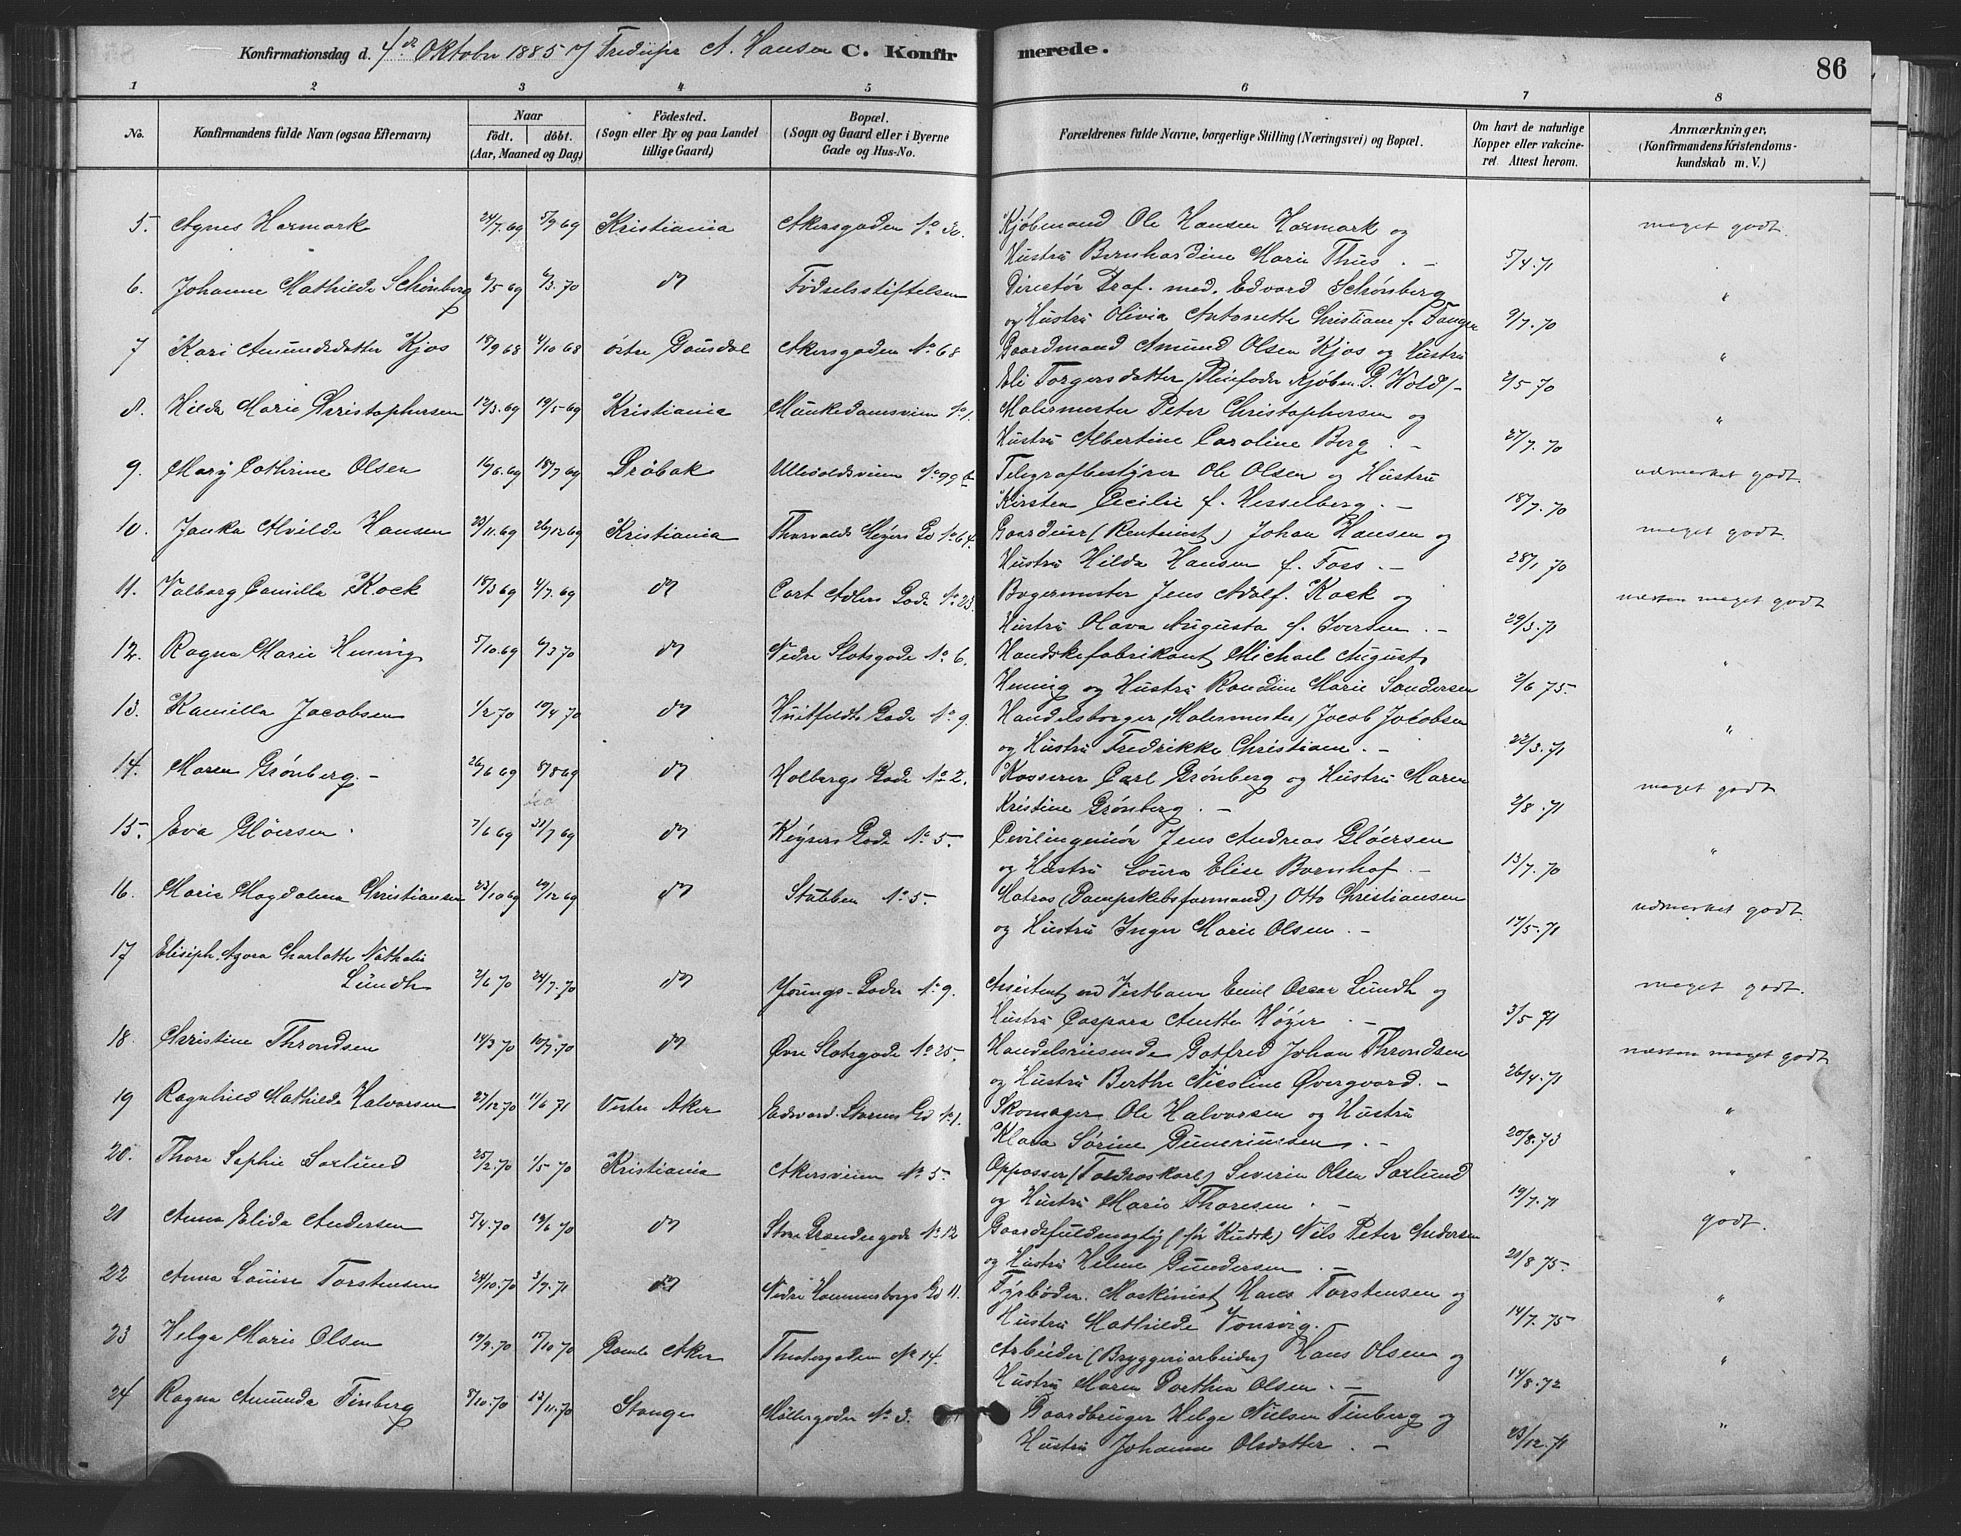 Konfirmationsdag d. 4de Oktober 1885 A. Hansen C. Konfirmerede.
86
1 2 3 4 5 6 7 8
No. Konfirmandens fulde Navn (ogsaa Efternavn) Naar født. døbt. (Aar, Maaned og Dag) Fødested. (Sogn eller By og paa Landet tillige Gaard) Bopæl. (Sogn og Gaard eller i Byerne Gade og Hus-No. Forældrenes fulde Navne, borgerlige Stilling (Næringsvei) og Bopæl. Om havt de naturlige Kopper eller vakcineret. Attest herom. Anmærkninger, (Konfirmandens Kristendomskundskab m. V.)
5. Agnes Harmark 24/7.69 5/9 69 Kristiania Akersgaden No 30. Kjøbmand Ole Hansen Harmark og meget godt.
Hustru Bernhardine Marie Thus. - 5/4.71
6. Johanne Mathilde Schønberg 6/5 69 6/3.70 do Fødselsstiftelsen Directør Prof. med. Edvard Schønberg "
og Hustru Olivia Antonette Christiane f. Tanger 9/7.70
7 Kari Amundsdatter Kjos 18/9 68 4/10 68 østre Gausdal Akersgaden No 68 Gaardmand Amund Olsen Kjos og Hustru "
Eli Torgersdatter (Pleiefader Kjøbm. P. Wold)- 2/5 70
8. Hilda Marie Christophersen 12/3.69 19/5 69 Kristiania Munkedamsveien No 1. Malermester Peter Christophersen og "
Hustru Albertine Caroline Berg. - 27/7.70
9. Mary Cathrine Olsen 16/6.69 18/7 69 Drøbak Ullevoldsveien No 99 b Telegrafbestyrer Ole Olsen og Hustru udmerket godt.
Kirsten Cecilie f. Hesselberg. - 18/7.70
10. Janka Alvilde Hansen 23/11.69 26/12 69 Kristiania Thorvald Meyers Gd No 64. Gaardeier (Rentenist) Johan Hansen og meget godt.
Hustru Hilda Hansen f. Foss. - 28/1 70
11. Valborg Camilla Kock 18/3 69 4/7.69 do Cort Adlers Gade No 23. Bagermester Jens Adolf. Kock og næsten meget godt
Hustru Olava Augusta f. Iversen. - 29/3.71
12. Ragna Marie Hennig 5/10.69 6/3 70 do Nedre Slotsgade No 6. Handskefabrikant Michael August "
Hennig og Hustru Randine Marie Sandersen 2/6 75.
13. Kamilla Jacobsen 1/2 70 19/4 70 do Huitfeldts Gade No 9. Handelsborger (Malermester) Jacob Jacobsen "
og Hustru Fredrikke Christiane. - 22/3.71
14. Maren Grønberg. - 26/6 69 8/8 69 do Holbergs Gade No 2. Kasserer Carl Grønberg og Hustru Maren meget godt
Kristine Grønberg. - 2/8.71
15. Eva Gløersen. 7/6 69 31/7 69 do Keysers Gade No 5. Civilingeniør Jens Andreas Gløersen "
og Hustru Laura Elise Bornhof. - 13/7.70
16. Marie Magdalena Christiansen 23/10 69 19/12 69 do Stubben No 5. Matros (Dampskibsformand) Otto Christiansen udmerket godt.
og Hustru Inger Marie Olsen. - 17/5.71
17 Elisiph. Agora Charlotte Nathalie
Lundh 2/6 70 24/7.70 do Youngs-Gade No 9. Assistent ved Vestbanen Emil Oscar Lundh og meget godt.
Hustru Caspara Anette Høyer - 3/5 71
18. Christine Throndsen 14/3 70 10/7.70 do Øvre Slotsgade No 25. Handelsreisende Gotfred Johan Throndsen næsten meget godt
og Hustru Berthe Nicoline Øvergaard. - 26/4.71
19 Ragnhild Mathilde Halvorsen 27/12.70 11/6 71 Vestre Aker Edvard Storms Gd No 1. Skomager Ole Halvorsen og Hustru "
Klara Sørine Guneriusen. - 20/8.73
20. Thora Sophie Saxlund 25/2.70 1/5 70 Kristiania Akersveien No 5. Oppasser (Toldroskarl) Severin Olsen Saxlund "
og Hustru Marie Thoresen. - 19/7.71
21 Anna Elida Andersen 5/4.70 19/6 70 do Store Grændsegade No 12 Gaardsfuldmægtig (før Kudsk) Nils Peter Andersen godt.
og Hustru Helene Gundersen. - 21/8 75.
22 Anna Louise Torstensen 24/10.70 3/9.71 do Nedre Hammersborgs Gd 11. Fyrbøder. Maskinist Hans Torstensen og "
Hustru Mathilde Vonsvig. - 14/7.75
23 Helga Marie Olsen 19/9.70 15/10 70 Gamle Aker Theatergaden No 14. Arbeider (Bryggeriarbeider) Hans Olsen og "
Hustru Maren Dorthea Olsen. - 14/8.72
24 Ragna Amunda Finberg 8/10.70 13/11.70 Stange Møllergaden No 3. Gaardbruger Helge Nielsen Finberg og "
Hustru Johanne Olsdatter. - 23/12.71